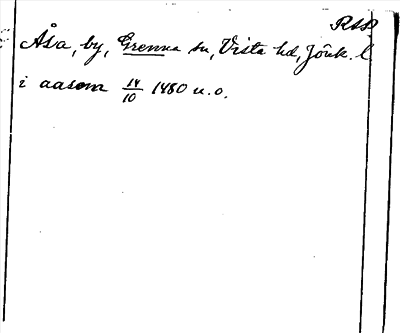 RAP
Åsa, by, Grenna sn, Vista hd, Jönk. l
i aasom 14/10 1480 u.o.